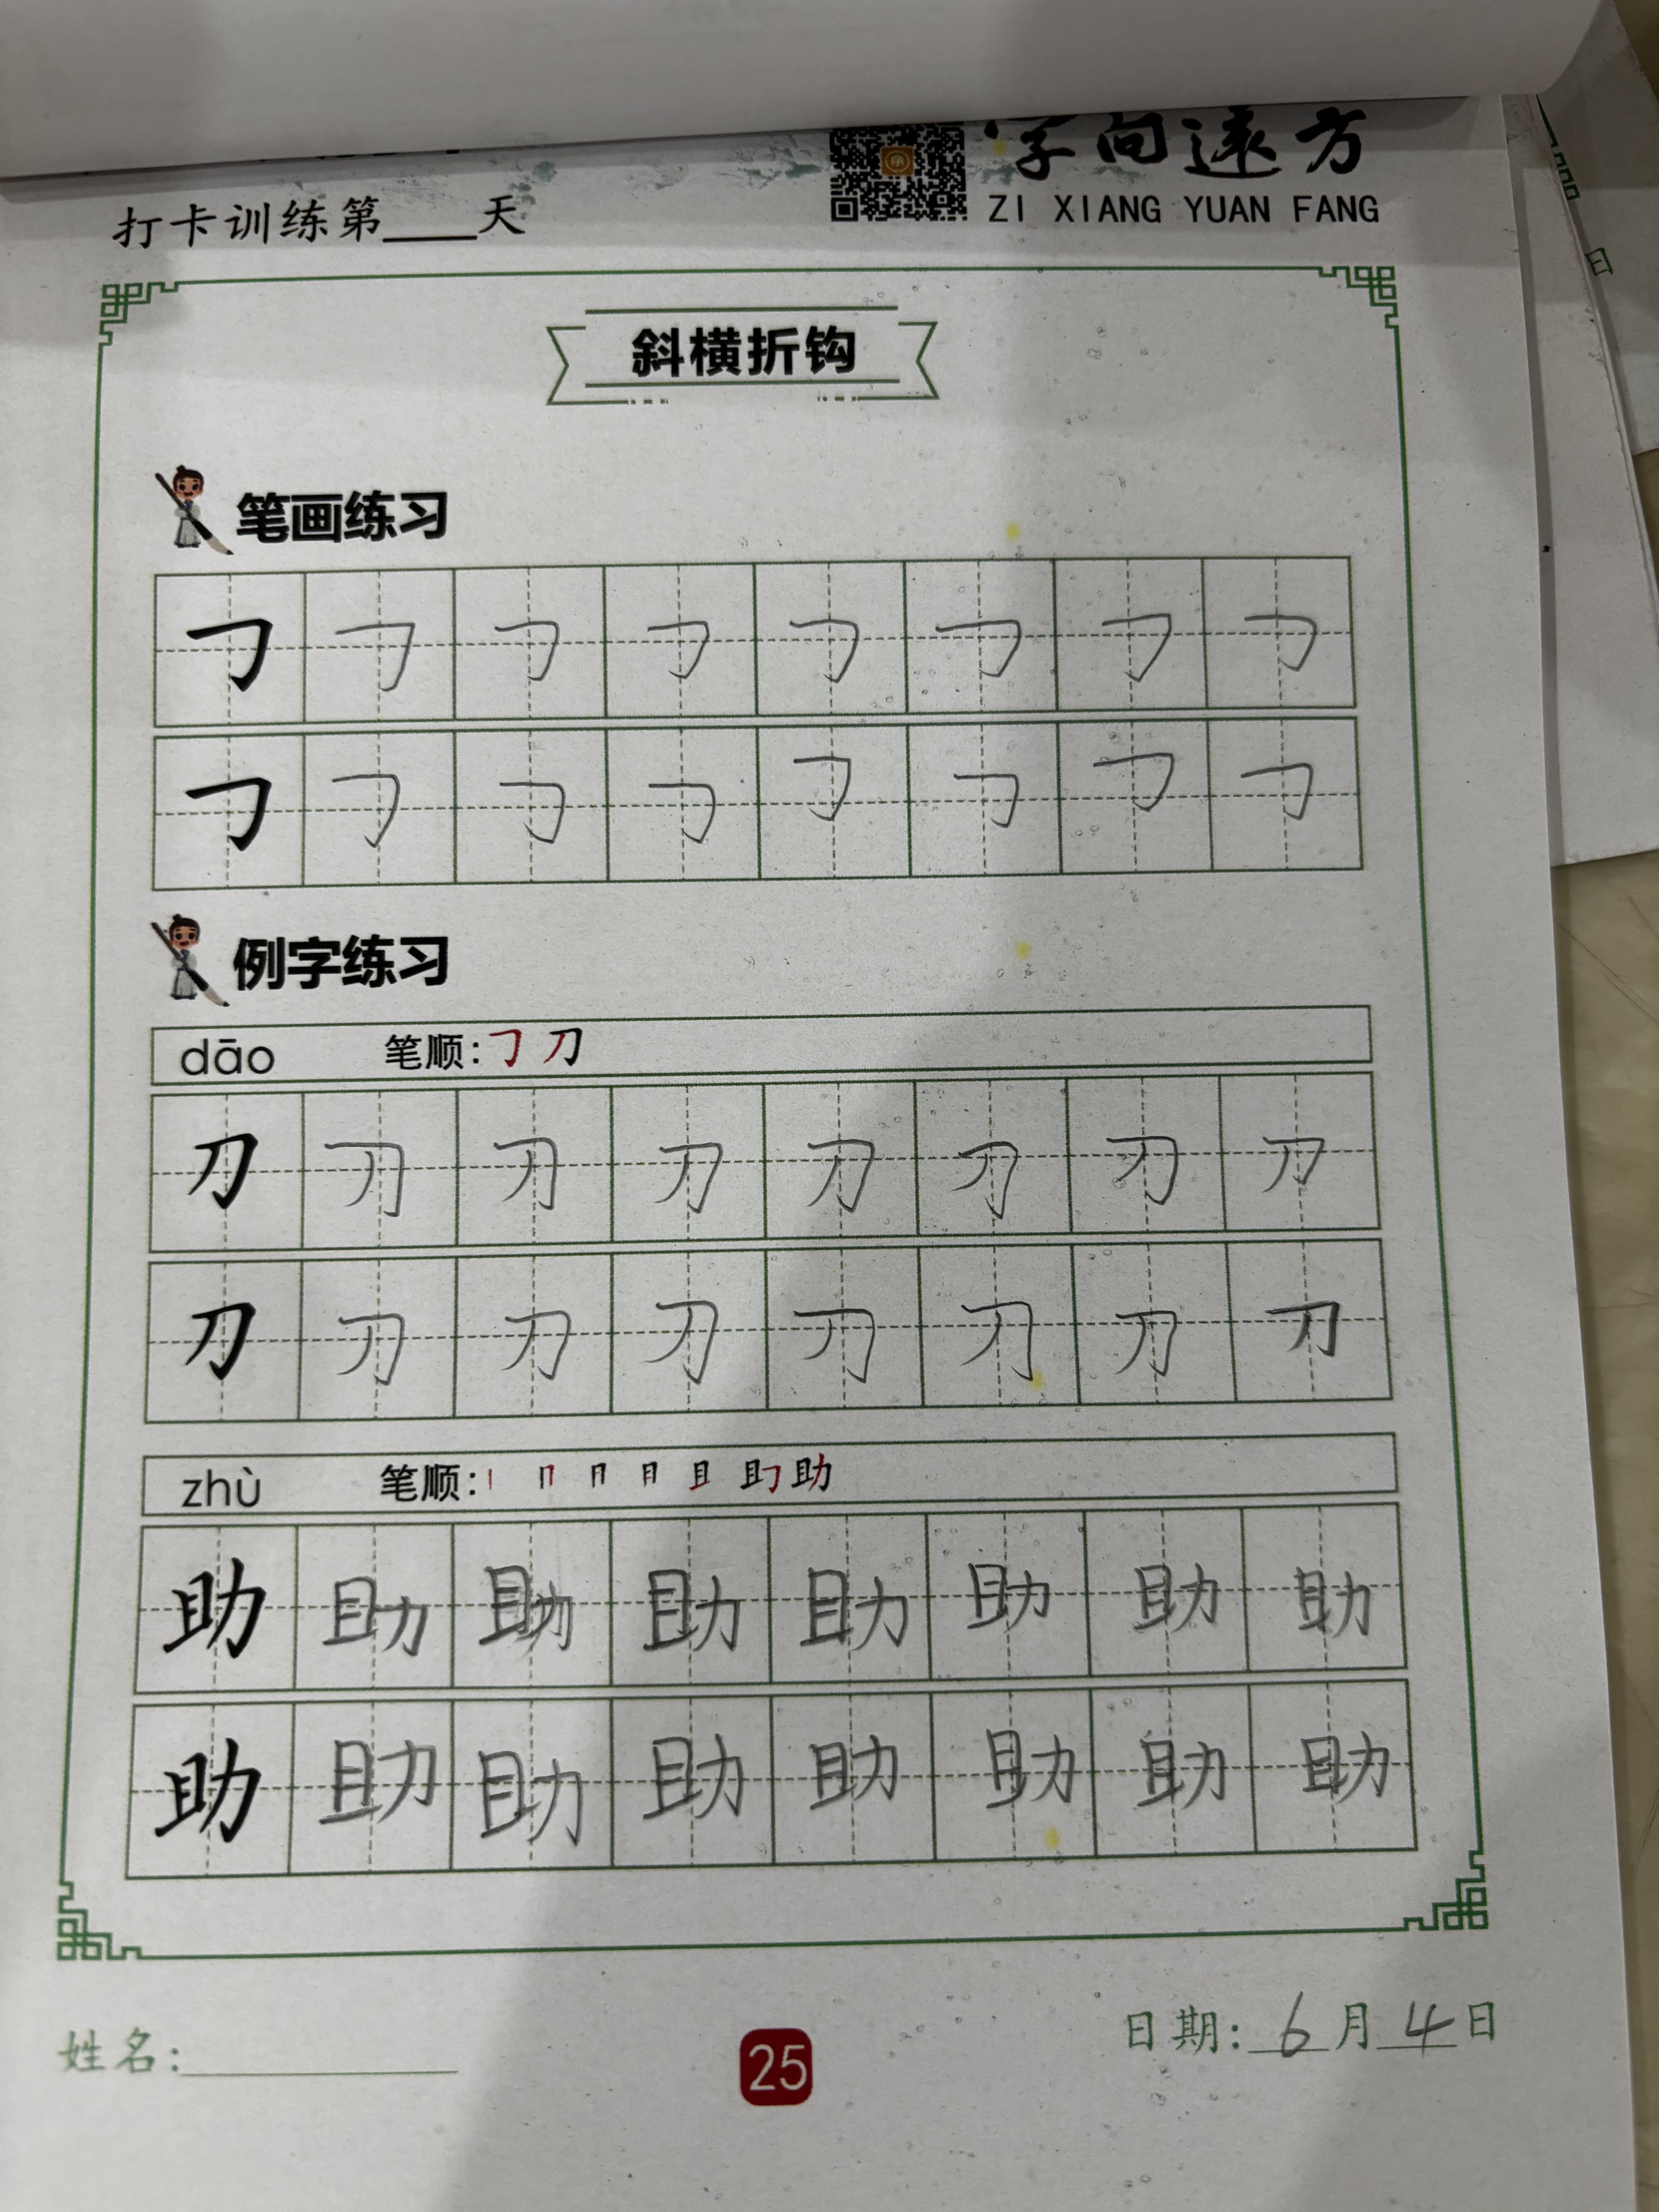 字向远方
ZI XIANG YUAN FANG
打卡训练第____天
斜横折钩
笔画练习
㇆ ㇆ ㇆ ㇆ ㇆ ㇆ ㇆ ㇆
㇆ ㇆ ㇆ ㇆ ㇆ ㇆ ㇆ ㇆
例字练习
dāo 笔顺:㇆ 刀
刀 刀 刀 刀 刀 刀 刀 刀
刀 刀 刀 刀 刀 刀 刀 刀
zhù 笔顺:丨 冂 月 月 且 助 助
助 助 助 助 助 助 助 助
助 助 助 助 助 助 助 助
姓名:
25
日期: 6 月 4 日